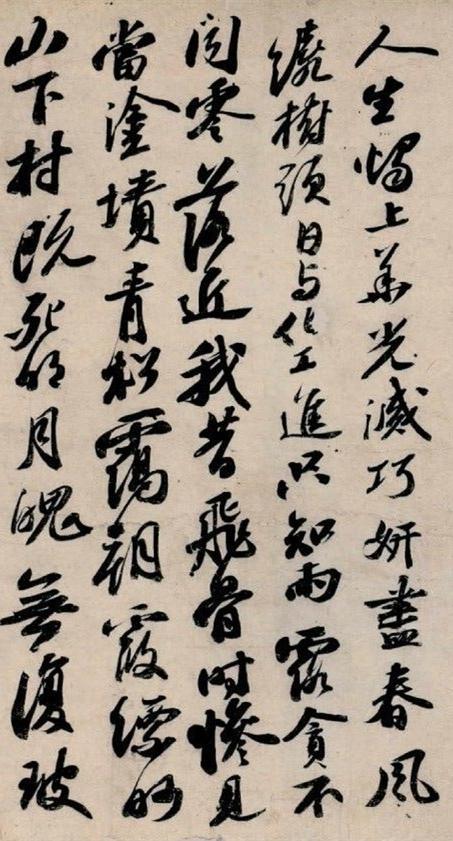 人生燭上華光滅巧妍盡春風
繞樹頭日与化工進只知雨露貪不
聞零落近我昔飛骨時慘見
當塗墳青松靄朝霞縹眇
山下村既死明月魄無復玻